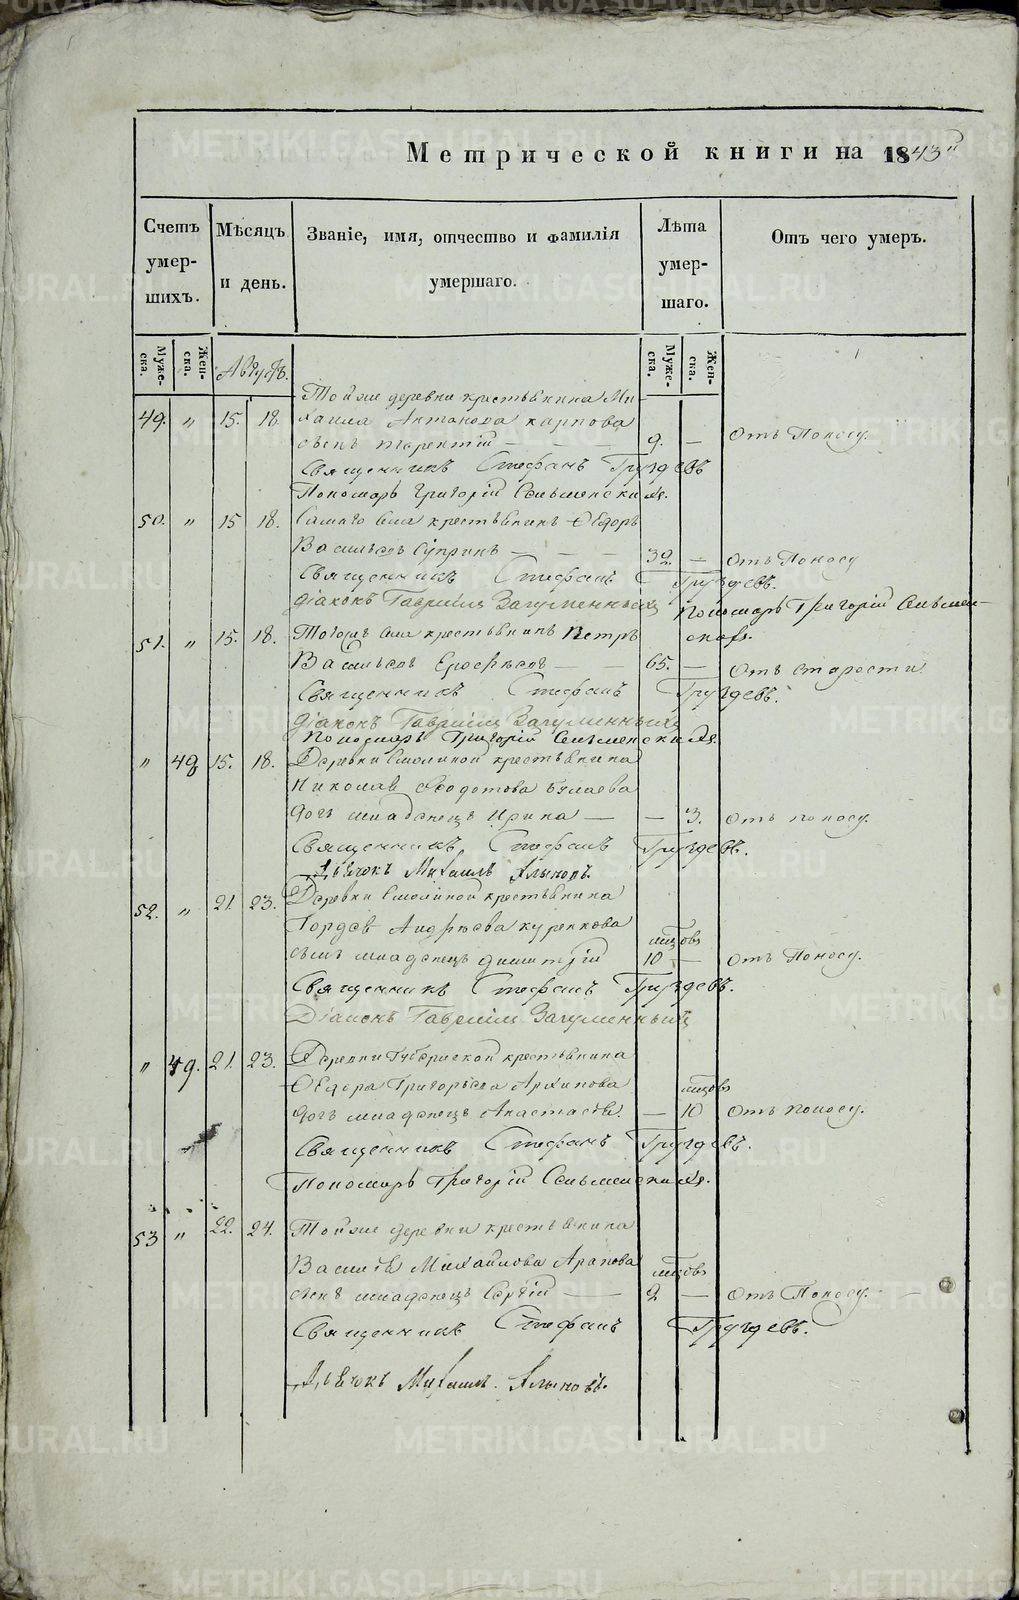 Метрической книги на 1843й
Счетъ умер-шихъ.
Мѣсяцъ и день.
Званіе, имя, отчество и фамилія умершаго.
Лѣта умер шаго.
Отъ чего умеръ.
Муже-ска.
Жен-ска.
Августъ.
Муже-ска.
Жен-ска.
Тойже деревни крестьянина Ми-
49. „ 15. 18. хаила Антонова карпова
сынъ терентій — 9. — Отъ Поносу.
Священникъ Стефанъ Груздевъ
Пономарь Григорій Сельменскихъ.
50. „ 15 18. Самаго села крестьянинъ Ѳедоръ
Васильевъ Супринъ — — — 32. — Отъ Поносу
Священникъ Стефанъ Груздевъ.
діаконъ Гавріилъ Загуменныхъ Пономарь Григорій Сельмен-
51. „ 15. 18. Тогоже села крестьянинъ Петръ скихъ.
Васильевъ Ерофѣевъ — — 65. — Отъ старости
Священникъ Стефанъ Груздевъ.
Діаконъ Гавріилъ Загуменныхъ
Пономарь Григорій Сельменскихъ.
„ 48 15. 18. Деревни Смолиной крестьянина
Николая Ѳеодотова
дочь младенецъ Ирина — — 3. Отъ поносу.
Священникъ Стефанъ Груздевъ.
Дьячокъ Михаилъ
52. „ 21. 23. Деревни Смолиной крестьянина
Гордея Андреева курепкова мцовъ
сынъ младенецъ димитрій 10 — Отъ Поносу.
Священникъ Стефанъ Груздевъ.
Діаконъ Гавріилъ Загуменный
„ 49. 21. 23. Деревни крестьянина
Ѳедора Григорьева Архипова мцовъ
дочь младенецъ Анастасія. — 10 Отъ поносу.
Священникъ Стефанъ Груздевъ.
Пономарь Григорій Сельменскихъ.
53 „ 22. 24. Тойже деревни крестьянина
Василія Михайлова Арапова мцовъ
сынъ младенецъ Сергій — 2 — Отъ Поносу.
Священникъ Стефанъ Груздевъ.
Дьячокъ Михаилъ
METRIKI.GASO-URAL.RU